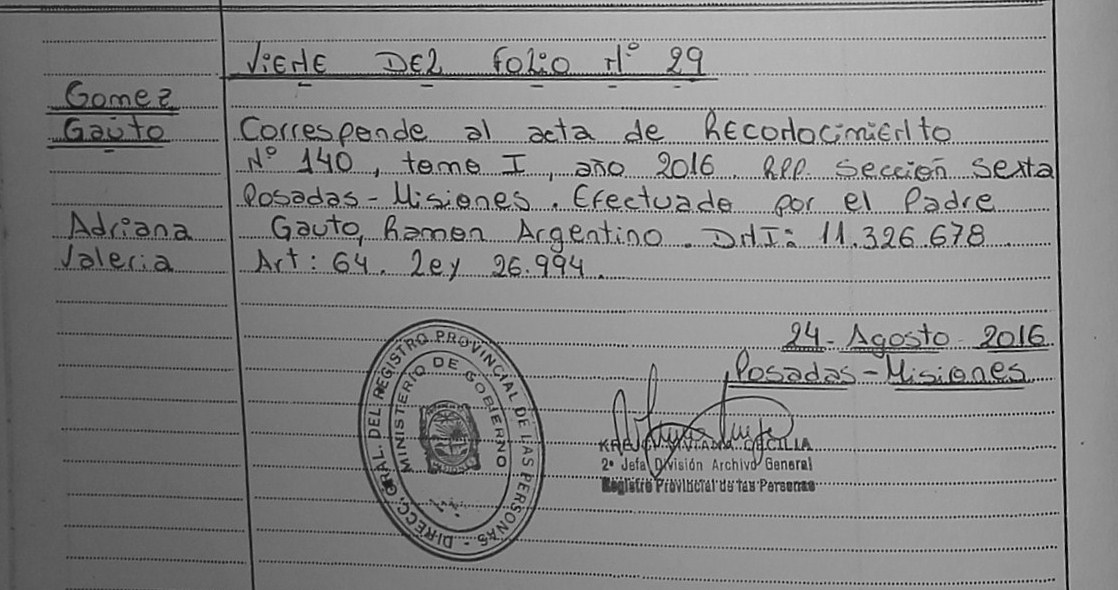 Viene DEL Folio Nº 29
Gomez
Gauto
Corresponde al acta de Reconocimiento
Nº 140, tomo I, año 2016. RPP. Sección Sexta
Posadas - Misiones. Efectuado por el Padre
Adriana
Gauto, Ramon Argentino. DNI: 11.326.678
Valeria
Art: 64. Ley 26.994.
24 - Agosto - 2016
Posadas - Misiones
DIRECC. GRAL. DEL REGISTRO PROVINCIAL DE LAS PERSONAS -
MINISTERIO DE GOBIERNO
CECILIA
2º Jefa División Archivo General
Registro Provincial de las Personas